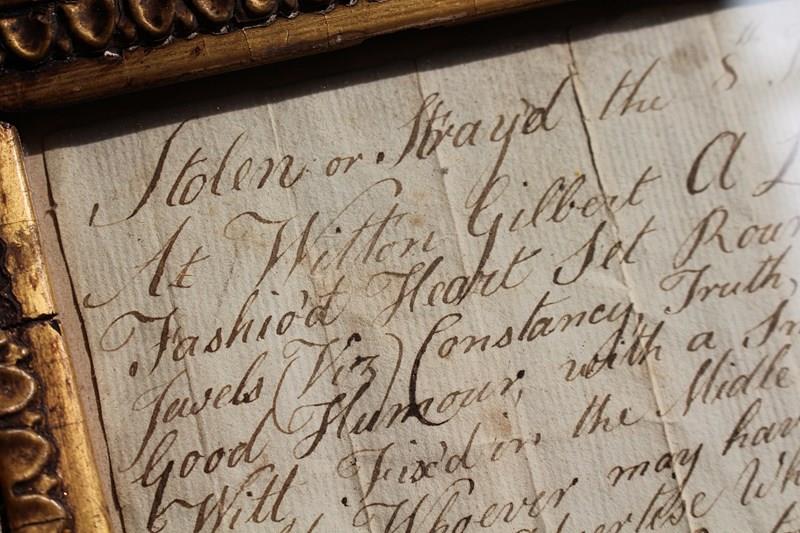 Stolen or Stray'd the 8th
At Witton Gilbert A
Fashio'd Heart Set Roun
Jewels (Viz) Constancy, Truth,
Good Humour, with a
Witt Fix'd in the Midle
Whoever may hav
advertise Wh